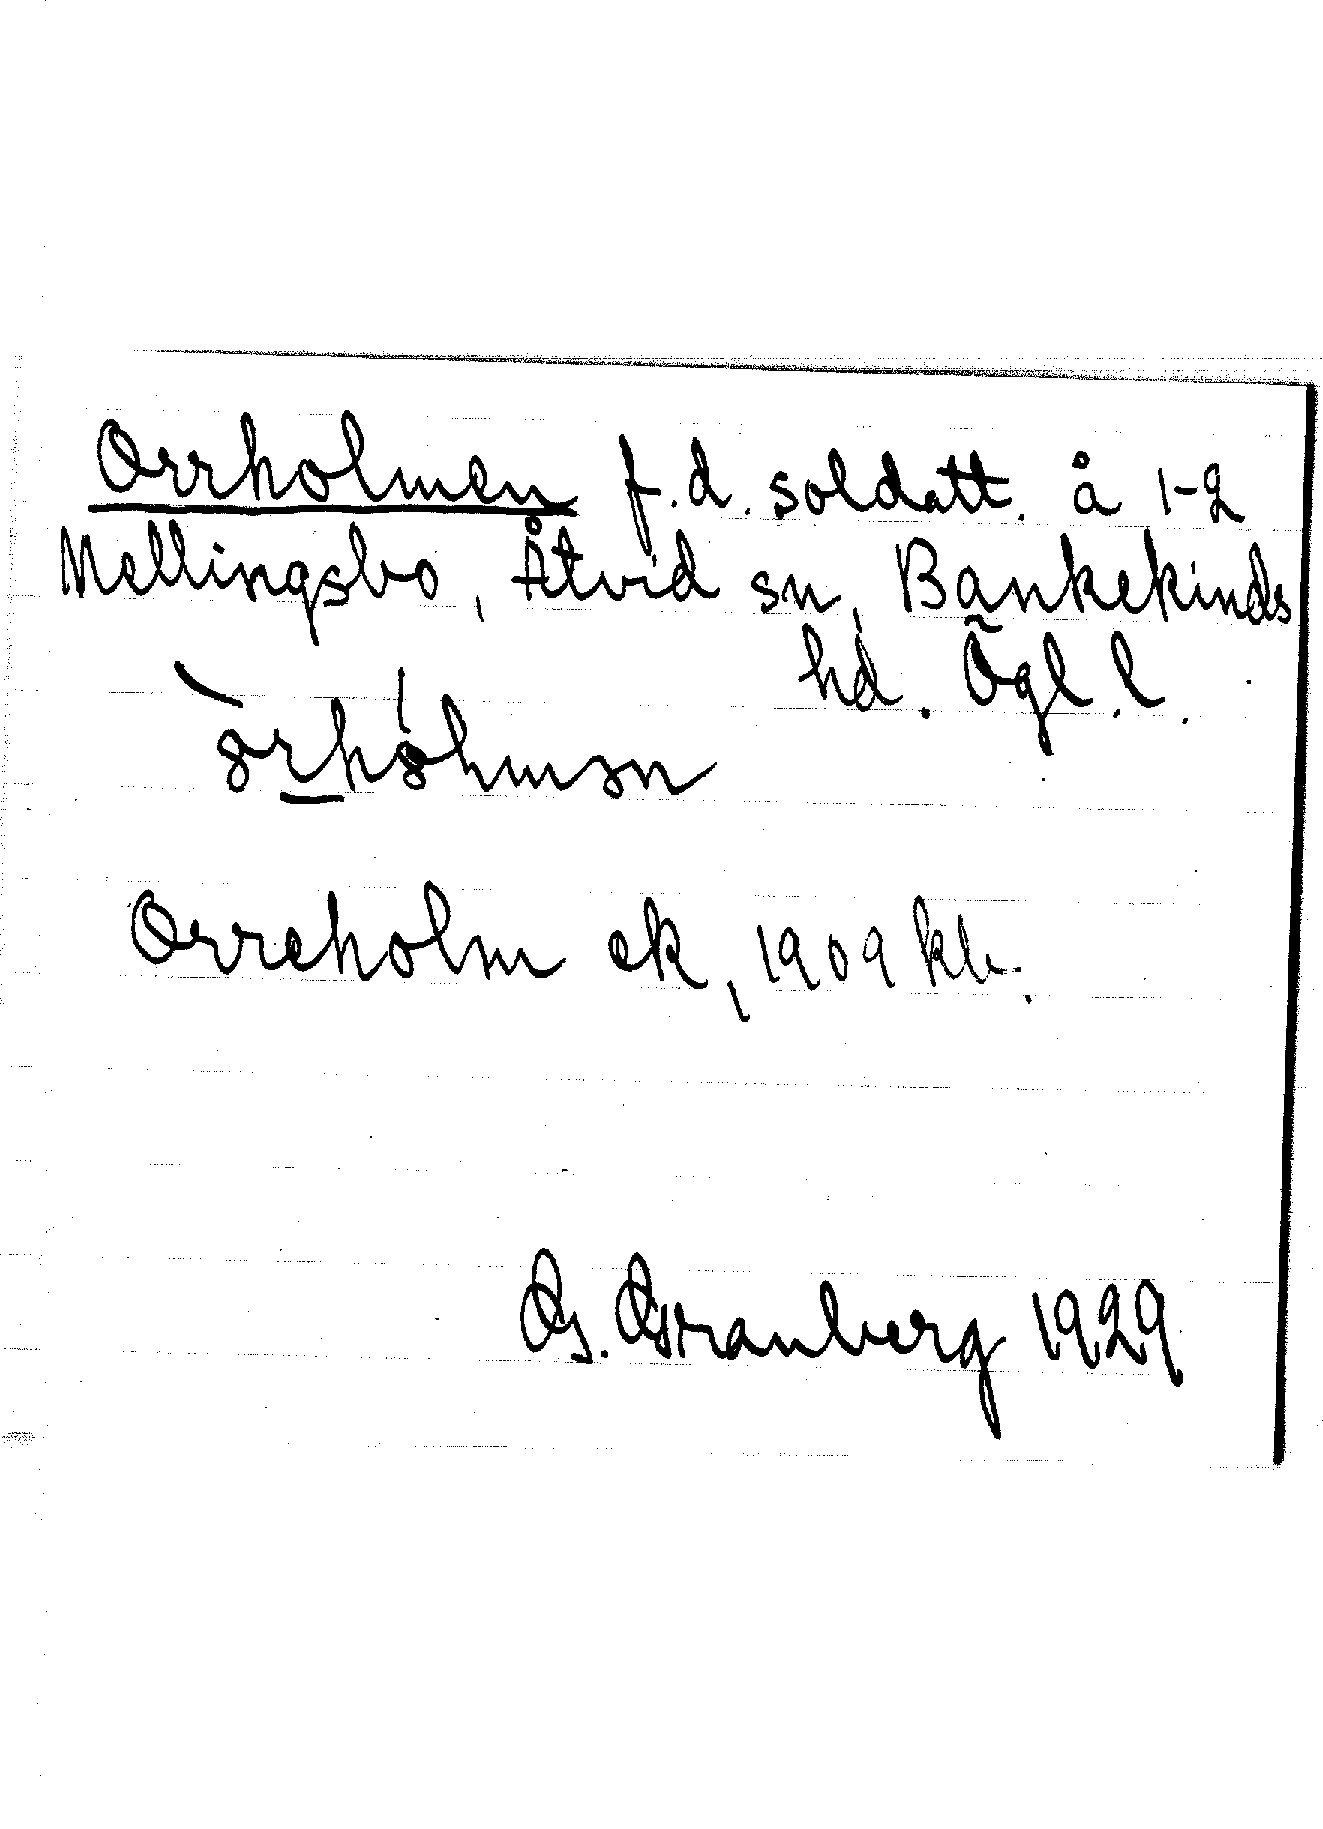 Orrholmen f.d. soldatt. å 1-2
Mellingsbo, Åtvid sn, Bankekinds
hd. Ögl. l.
Orreholm ek, 1909 kb.
G. Granberg 1929